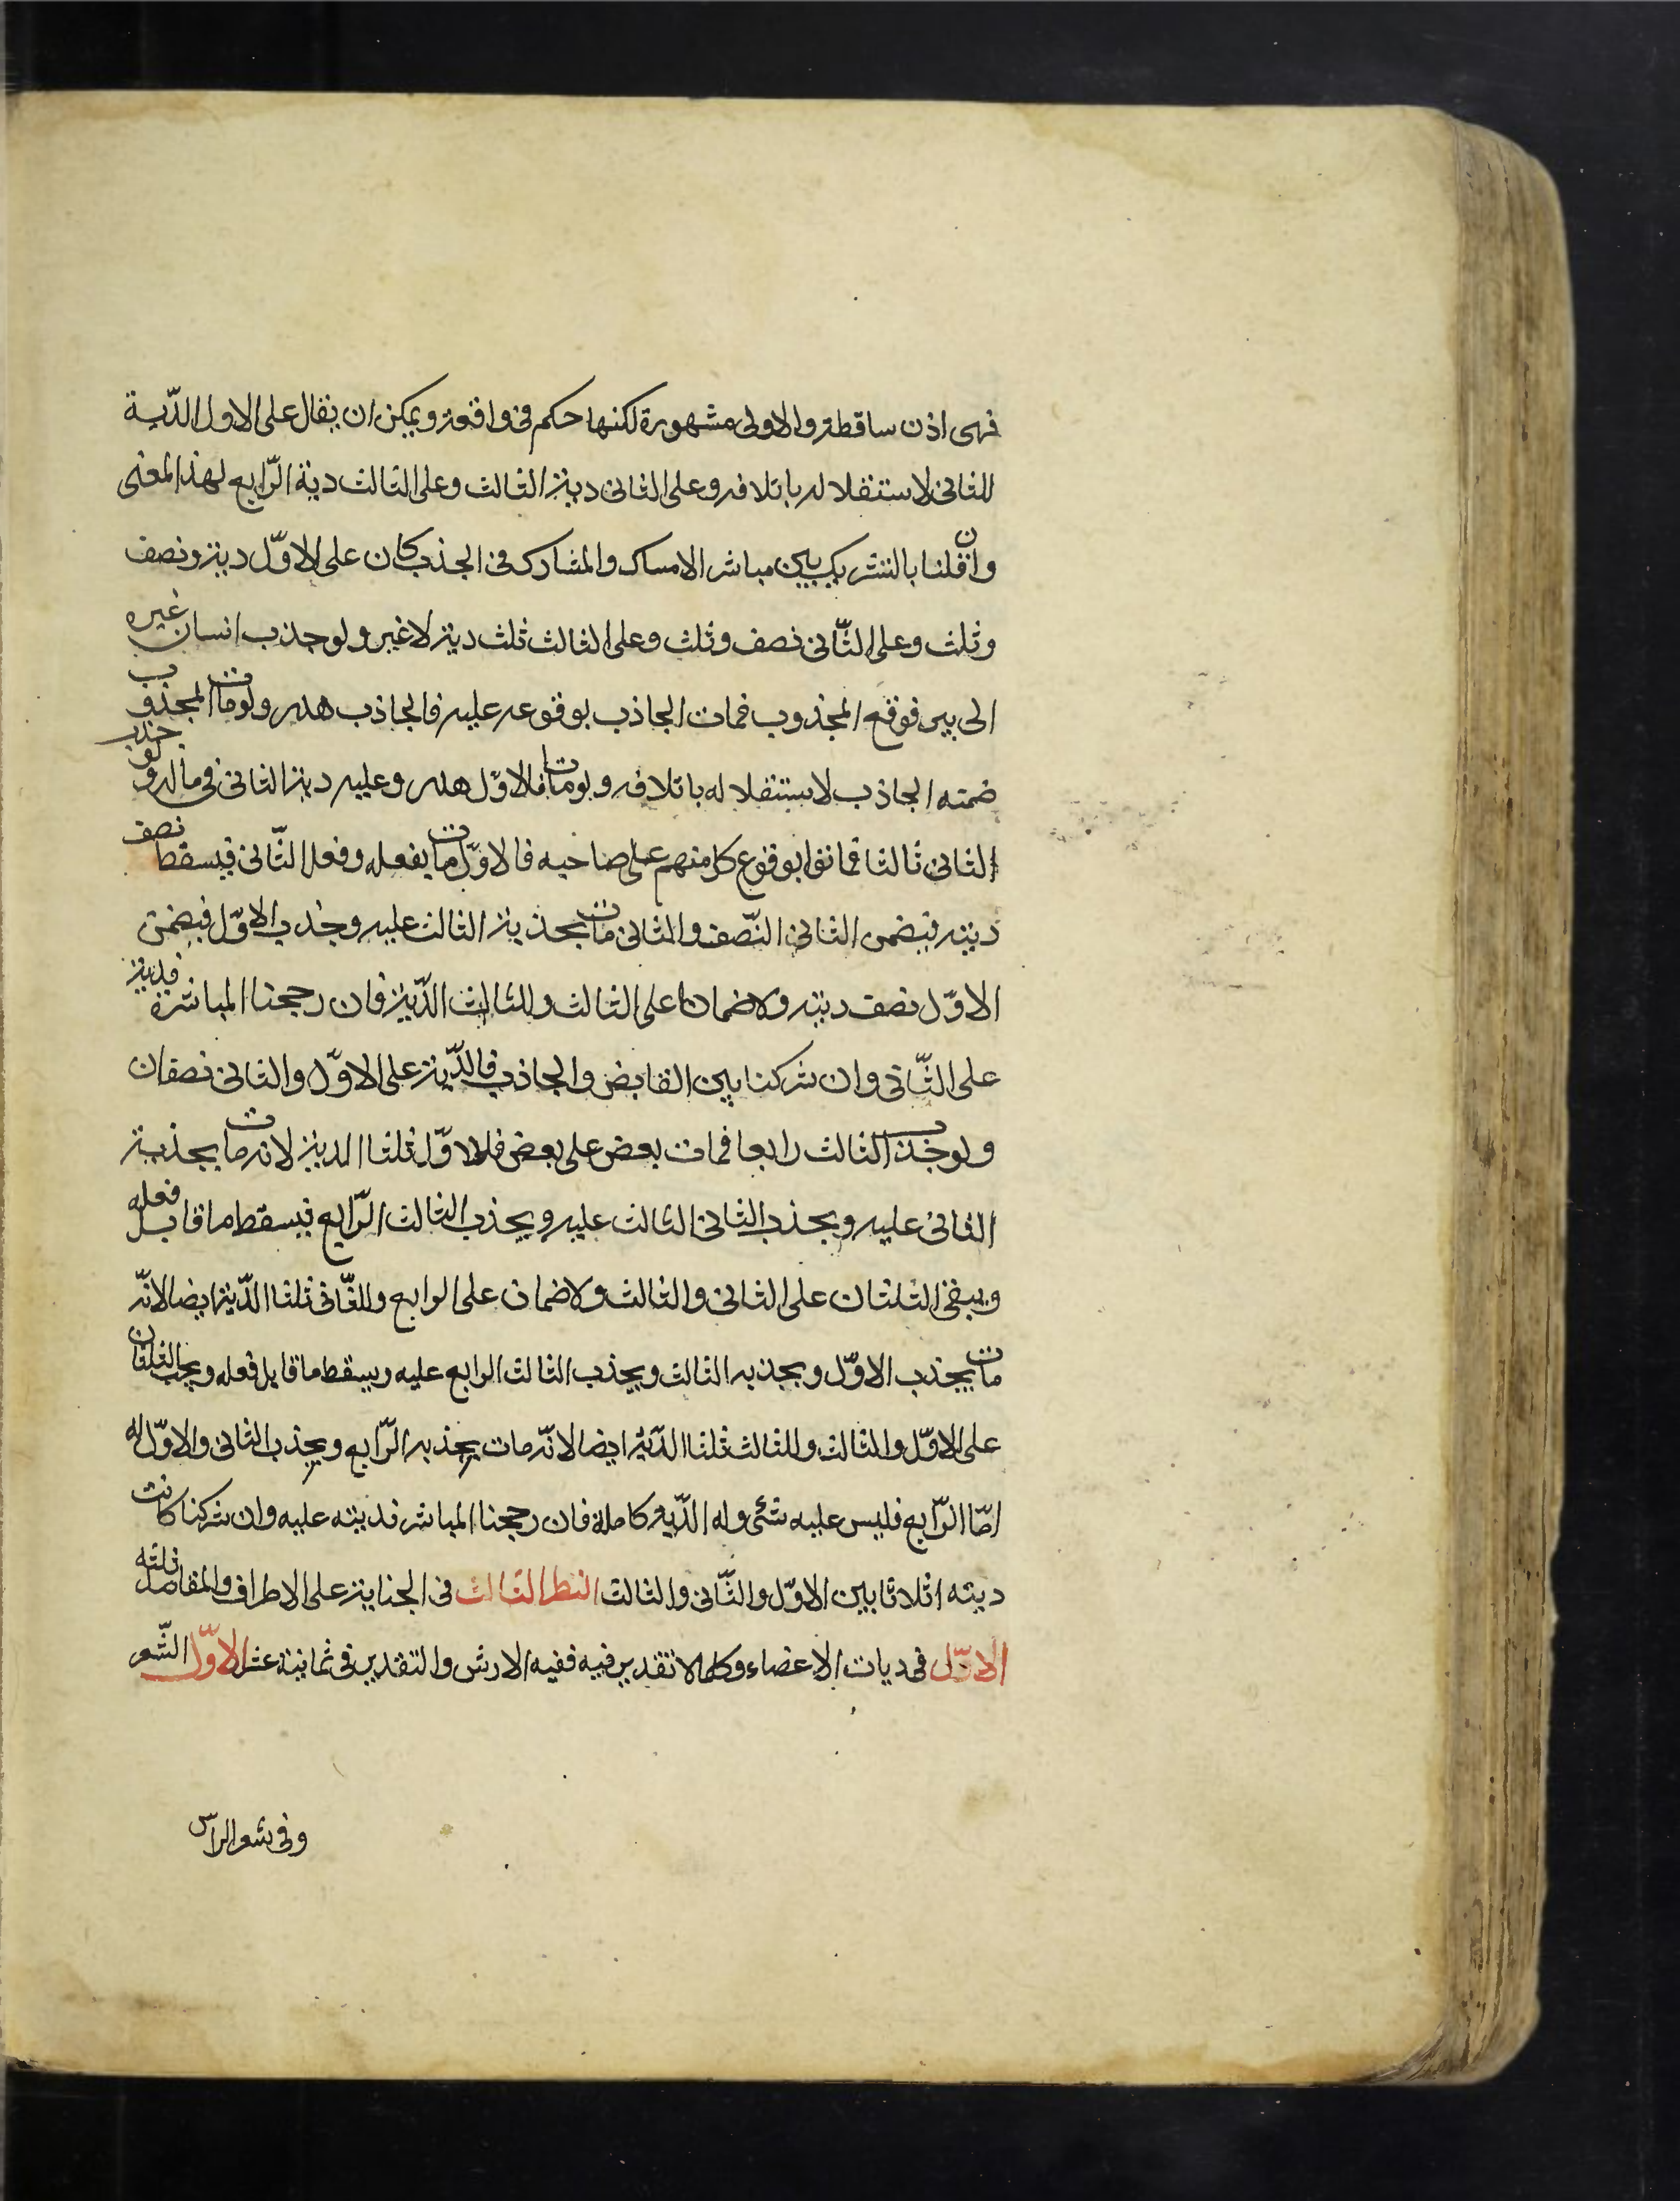 فهى اذن ساقطة والاولى مشهورة لكنها حكم فى واقعة ويمكن ان يقال على الاول الدّية
للثانى لاستقلاله باتلافه وعلى الثانى دية الثالث وعلى الثالث دية الرّابع لهذا المعنى
وان قلنا بالتشريك بين مباشر الامساك والمشارك فى الجذب كان على الاوّل دية ونصف
وثلث وعلى الثّانى نصف وثلث وعلى الثالث ثلث دية لا غير ولو جذب انسان غيره
الى بير فوقع المجذوب فمات الجاذب بوقوعه عليه فالجاذب هدر ولو مات المجذوب
ضمنه الجاذب لاستقلاله باتلافه ولو ماتا فالاوّل هدر وعليه دية الثانى فى ماله ولو جذب
الثانى ثالثا فماتوا بوقوع كل منهم على صاحبه فالاوّل مات بفعله وفعل الثّانى فيسقط نصف
ديته فيضمن الثانى النّصف والثانى مات بجذبه الثالث عليه وجذب الاوّل فيضمن
الاوّل نصف ديته ولا ضمان على الثالث وللثالث الدّية فان رجحنا المباشرة فدية
على الثّانى وان شركنا بين القابض والجاذب فالدّية على الاوّل والثانى نصفان
ولو جذب الثالث رابعا فمات بعض على بعض فللاوّل ثلثا الدية لانه مات بجذبة
الثانى عليه وبجذب الثانى الثالث عليه وبجذب الثالث الرّابع فيسقط ما قابل فعله
ويبقى الثلثان على الثانى والثالث ولا ضمان على الرابع وللثّانى ثلثا الدّية ايضا لانّه
مات بجذب الاوّل وبجذبه الثالث وبجذب الثالث الرابع عليه ويسقط ما قابل فعله ويجب الثلثان
على الاوّل والثالث وللثالث ثلثا الدّية ايضا لانّه مات بجذبه الرّابع وبجذب الثانى والاوّل له
امّا الرّابع فليس عليه شئ وله الدّية كاملة فان رجحنا المباشر فديته عليه وان شركنا كانت
ديته اثلاثا بين الاوّل والثّانى والثالث النظر الثالث فى الجناية على الاطراف والمقاصد ثلثه
الاوّل فى ديات الاعضاء وكلما لا تقدير فيه ففيه الارش والتقدير فى ثمانية عشر الاوّل الشّعر
وفى شعر الراس